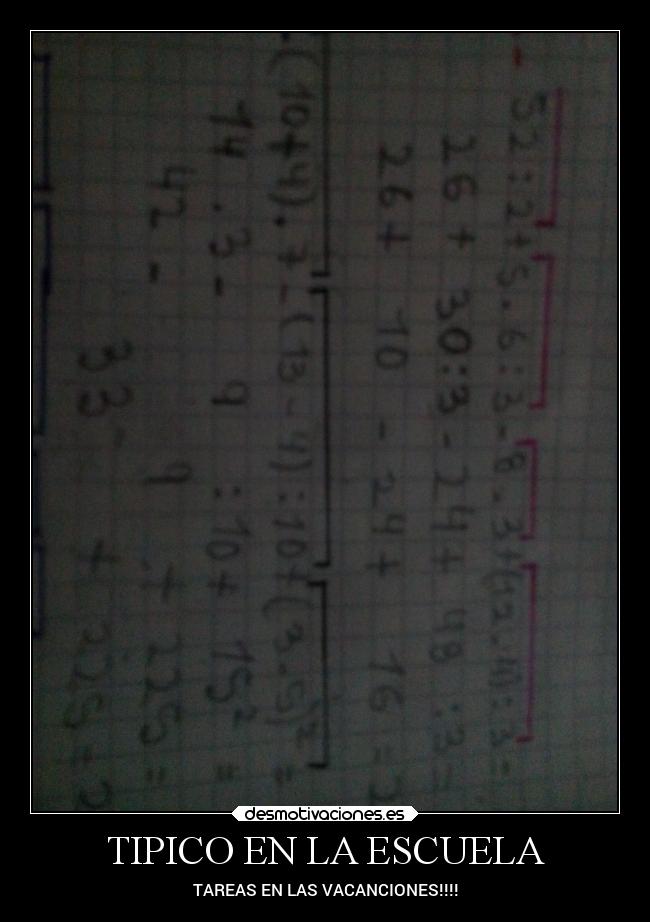 - 52:2+5.6:3-8.3+(12.4):3=
26 + 30:3-24+ 48 :3=
26+ 10 - 24+ 16 =
-(10+4).7-(13-4):10+(3.5)²=
14 .3- 9 :10+ 15² =
42 - 9 + 225 =
33 + 225 =
desmotivaciones.es
TIPICO EN LA ESCUELA
TAREAS EN LAS VACANCIONES!!!!